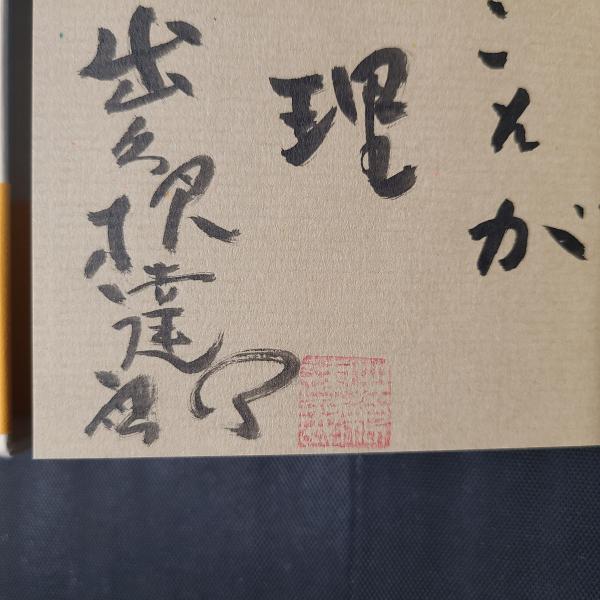 こえが
理
出久根達郎